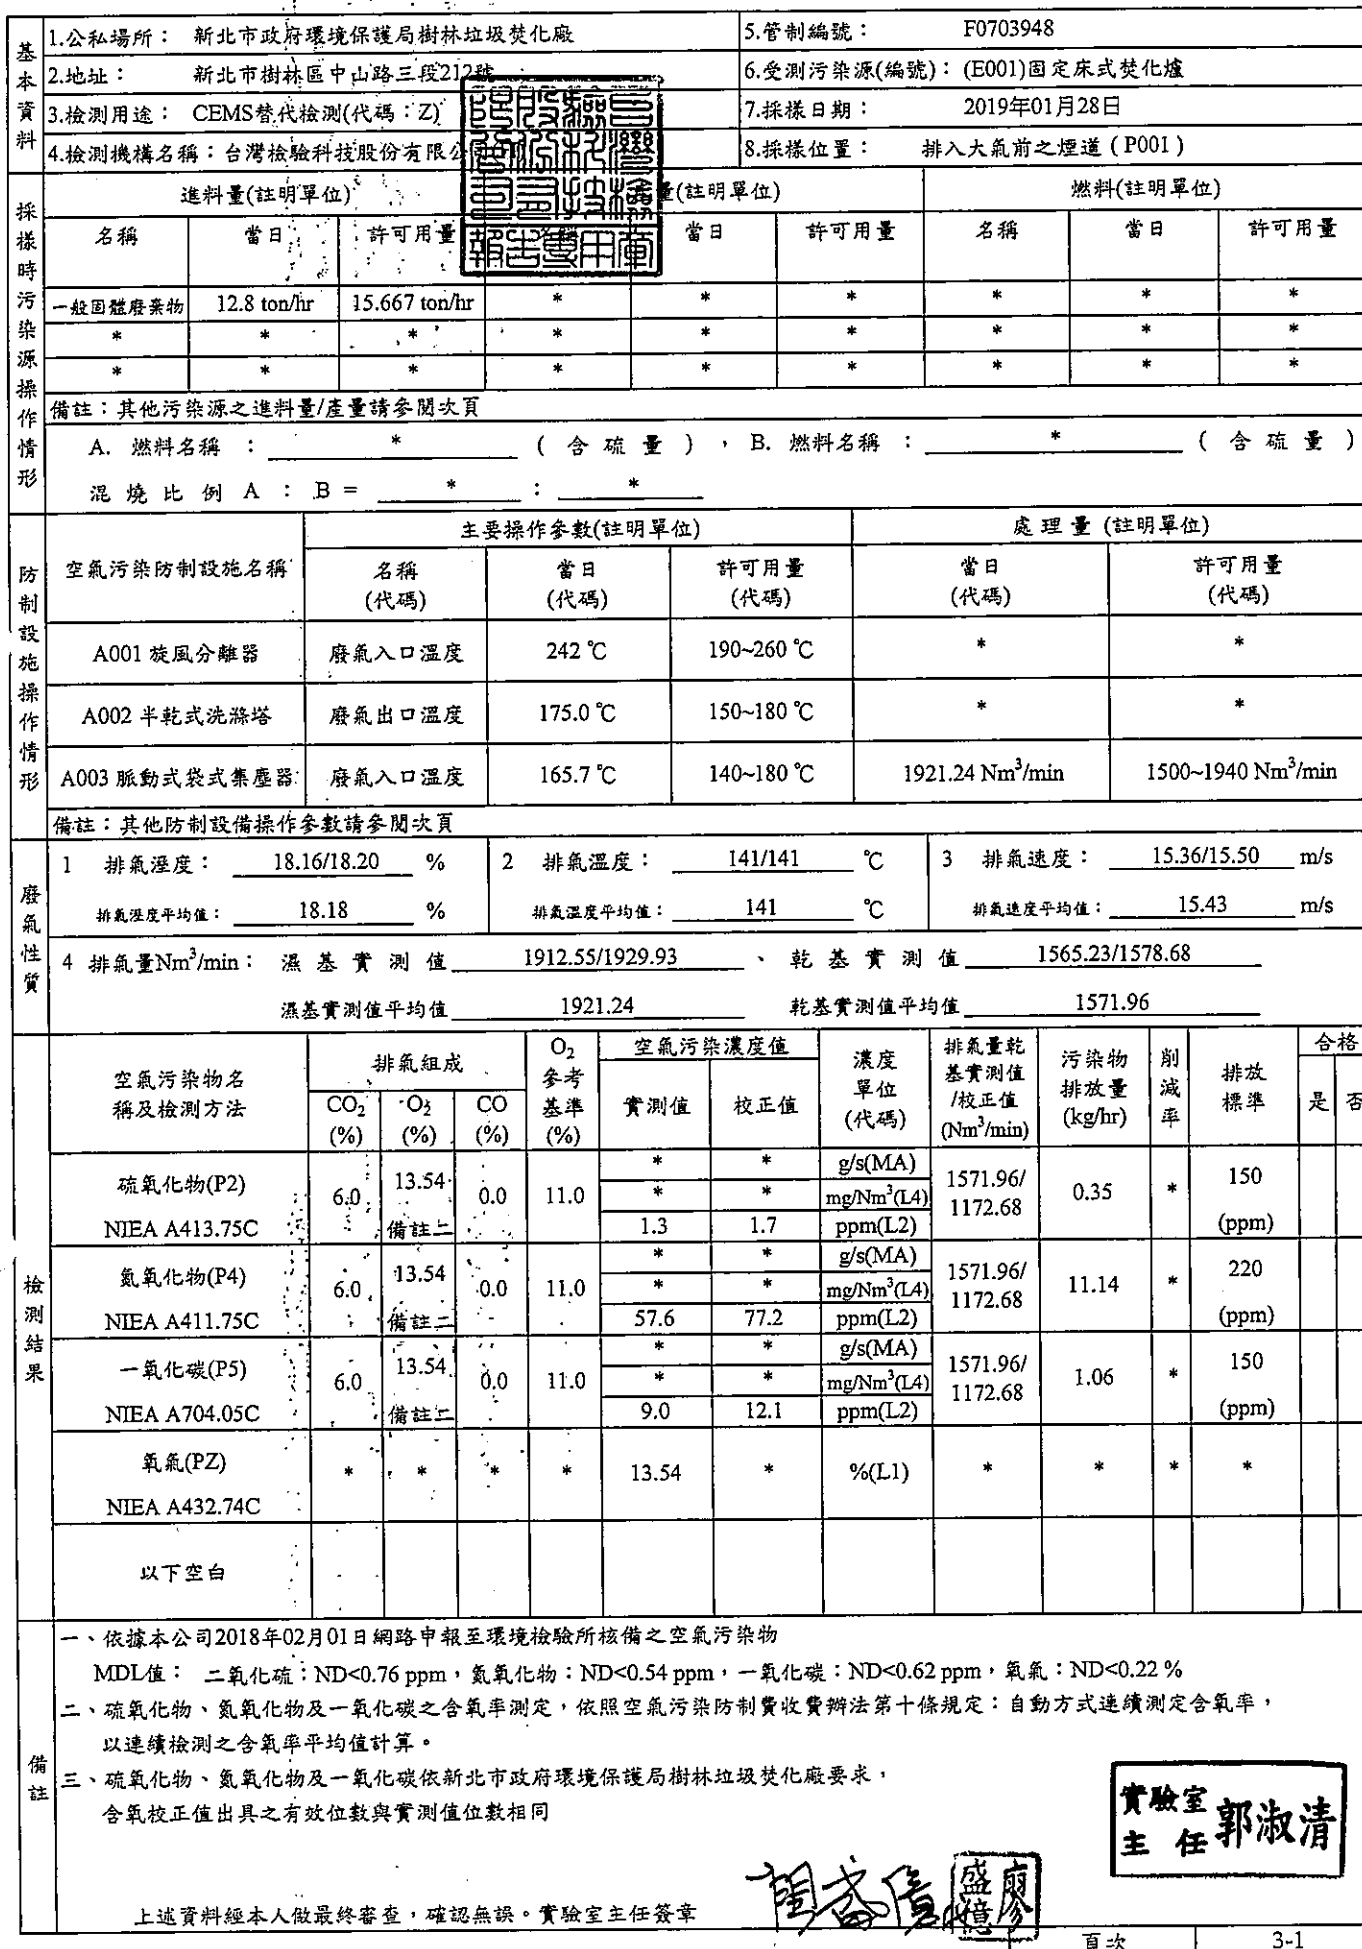 基本資料
1.公私場所： 新北市政府環境保護局樹林垃圾焚化廠
5.管制編號： F0703948
2.地址： 新北市樹林區中山路三段212號
6.受測污染源(編號)： (E001)固定床式焚化爐
3.檢測用途： CEMS替代檢測(代碼：Z)
7.採樣日期： 2019年01月28日
4.檢測機構名稱：台灣檢驗科技股份有限公
8.採樣位置： 排入大氣前之煙道 ( P001 )
採樣時污染源操作情形
進料量(註明單位) 量(註明單位) 燃料(註明單位)
名稱 當日 許可用量 名稱 當日 許可用量 名稱 當日 許可用量
一般固體廢棄物 12.8 ton/hr 15.667 ton/hr * * * * * *
* * * * * * * * *
* * * * * * * * *
備註：其他污染源之進料量/產量請參閱次頁
A. 燃料名稱 ： * ( 含硫量 ) ， B. 燃料名稱 ： * ( 含硫量 )
混燒比例 A ： B = * ： *
防制設施操作情形
空氣污染防制設施名稱 主要操作參數(註明單位) 處理量 (註明單位)
名稱 當日 許可用量 當日 許可用量
(代碼) (代碼) (代碼) (代碼) (代碼)
A001 旋風分離器 廢氣入口溫度 242 ℃ 190~260 ℃ * *
A002 半乾式洗滌塔 廢氣出口溫度 175.0 ℃ 150~180 ℃ * *
A003 脈動式袋式集塵器 廢氣入口溫度 165.7 ℃ 140~180 ℃ 1921.24 Nm³/min 1500~1940 Nm³/min
備註：其他防制設備操作參數請參閱次頁
廢氣性質
1 排氣溼度： 18.16/18.20 % 2 排氣溫度： 141/141 ℃ 3 排氣速度： 15.36/15.50 m/s
排氣溼度平均值： 18.18 % 排氣溫度平均值： 141 ℃ 排氣速度平均值： 15.43 m/s
4 排氣量Nm³/min： 濕基實測值 1912.55/1929.93 、 乾基實測值 1565.23/1578.68
濕基實測值平均值 1921.24 乾基實測值平均值 1571.96
檢測結果
空氣污染物名稱及檢測方法 排氣組成 O₂參考基準(%) 空氣污染濃度值 濃度單位(代碼) 排氣量乾基實測值/校正值(Nm³/min) 污染物排放量(kg/hr) 削減率 排放標準 合格
CO₂(%) O₂(%) CO(%) 實測值 校正值 是 否
硫氧化物(P2) NIEA A413.75C 6.0 13.54 備註二 0.0 11.0 * * g/s(MA) 1571.96/1172.68 0.35 * 150 (ppm)
* * mg/Nm³(L4)
1.3 1.7 ppm(L2)
氮氧化物(P4) NIEA A411.75C 6.0 13.54 備註二 0.0 11.0 * * g/s(MA) 1571.96/1172.68 11.14 * 220 (ppm)
* * mg/Nm³(L4)
57.6 77.2 ppm(L2)
一氧化碳(P5) NIEA A704.05C 6.0 13.54 備註二 0.0 11.0 * * g/s(MA) 1571.96/1172.68 1.06 * 150 (ppm)
* * mg/Nm³(L4)
9.0 12.1 ppm(L2)
氧氣(PZ) NIEA A432.74C * * * * 13.54 * %(L1) * * * *
以下空白
備註
一、依據本公司2018年02月01日網路申報至環境檢驗所核備之空氣污染物
MDL值： 二氧化硫：ND<0.76 ppm，氮氧化物：ND<0.54 ppm，一氧化碳：ND<0.62 ppm，氧氣：ND<0.22 %
二、硫氧化物、氮氧化物及一氧化碳之含氧率測定，依照空氣污染防制費收費辦法第十條規定：自動方式連續測定含氧率，
以連續檢測之含氧率平均值計算。
三、硫氧化物、氮氧化物及一氧化碳依新北市政府環境保護局樹林垃圾焚化廠要求，
含氧校正值出具之有效位數與實測值位數相同
實驗室主任 郭淑清
上述資料經本人做最終審查，確認無誤。實驗室主任簽章
頁次 3-1